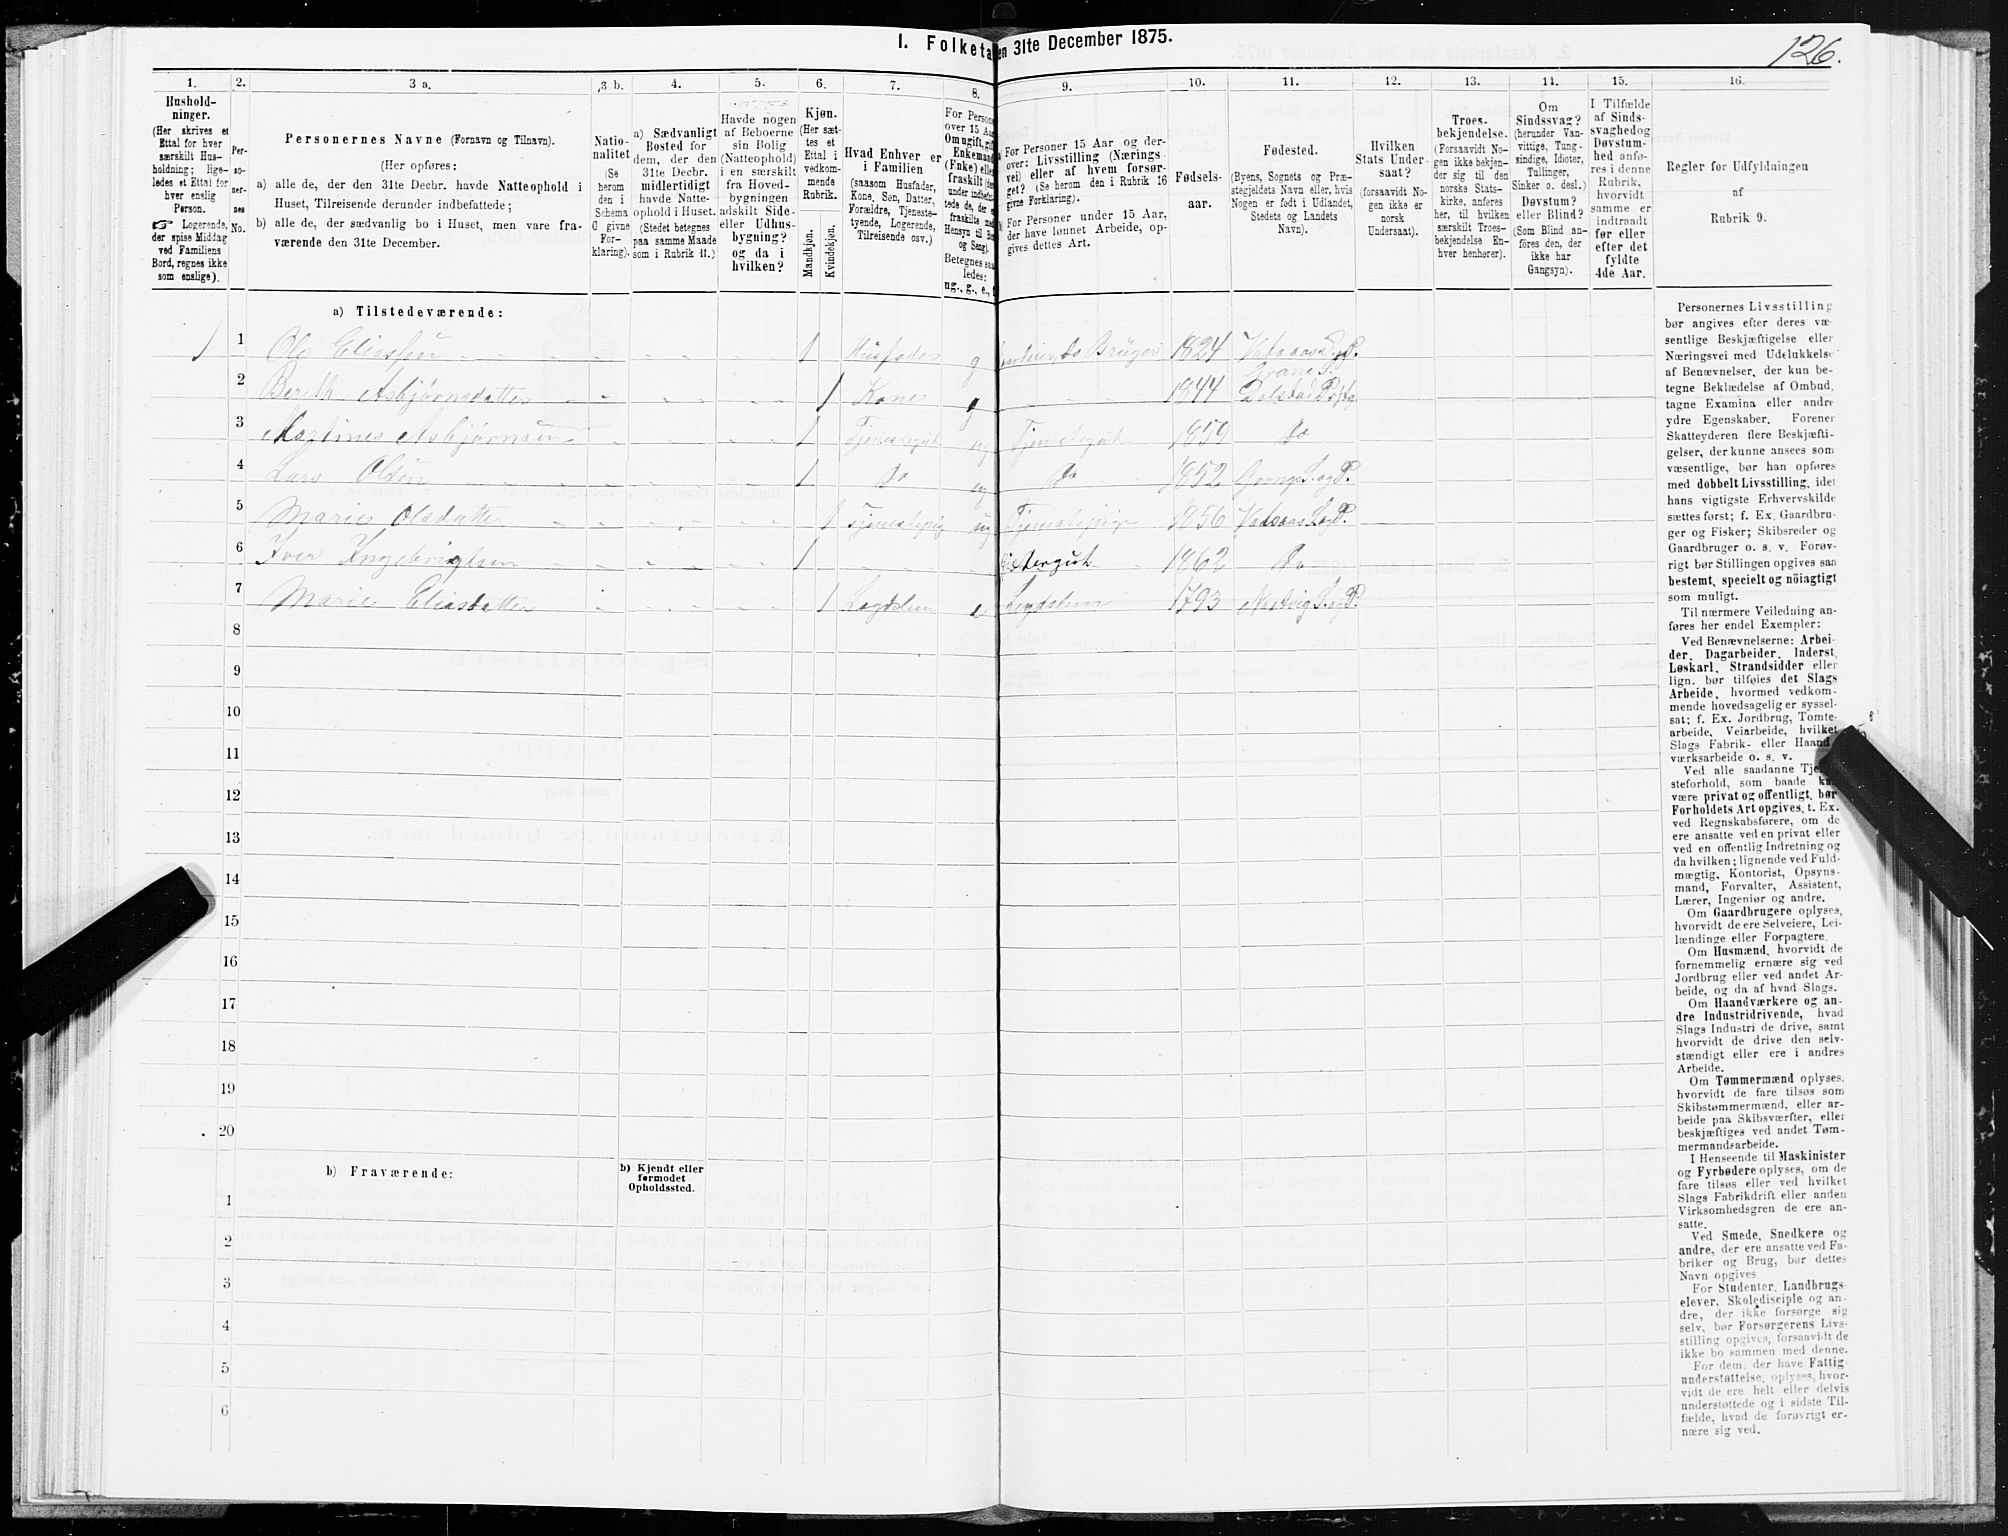 126.
I. Folketa
en 31te December 1875.
1.
2.
3 a.
3 b.
4.
5.
6.
7.
8.
9.
10.
11.
12.
13.
14.
15.
16.
Hushold-
ninger.
(Her skrives et
Ettal for hver
særskilt Hus-
holdning; lige-
ledes et Ettal for
hver enslig
Person.
☞ Logerende,
der spise Middag
ved Familiens
Bord, regnes ikke
som enslige).
Per-
so-
ner-
nes
No.
Personernes Navne (Fornavn og Tilnavn).
(Her opføres:
a) alle de, der den 31te Decbr. havde Natteophold i
Huset, Tilreisende derunder indbefattede;
b) alle de, der sædvanlig bo i Huset, men vare fra-
værende den 31te December.
Natio-
nalitet
(Se
herom
den i
Schema
O givne
For-
klaring).
a) Sædvanligt
Bosted for
dem, der den
31te Decbr.
midlertidigt
havde Natte-
ophold i Huset.
(Stedet betegnes
paa samme Maade
som i Rubrik 11.)
Havde nogen
af Beboerne
sin Bolig
(Natteophold)
i en særskilt
fra Hoved-
bygningen
adskilt Side-
eller Udhus-
bygning?
og da i
hvilken?
Kjøn.
(Her sæt-
tes et
Ettal i
vedkom-
mende
Rubrik.
Mandkjøn.
Kvindekjøn.
Hvad Enhver er
i Familien
(saasom Husfader,
Kone, Søn, Datter,
Forældre, Tjeneste-
tyende, Logerende,
Tilreisende osv.)
For Persone
over 15 Aar
Om ugift, gift
Enkemand
(Enke) eller
fraskilt (de
under indbefat-
tede de, der e
fraskilte med
Hensyn til Bo
og Seng).
Betegnes saa
ledes:
ug., g., e., f
For Personer 15 Aar og der-
over: Livsstilling (Nærings-
vei) eller af hvem forsør-
get? (Se herom den i Rubrik 16
givne Forklaring).
For Personer under 15 Aar,
der have lønnet Arbeide, op-
gives dettes Art.
Fødsels-
aar.
Fødested.
(Byens, Sognets og Præ-
stegjeldets Navn eller, hvis
Nogen er født i Udlandet,
Stedets og Landets
Navn).
Hvilken
Stats Under-
saat?
(forsaavidt No-
gen ikke er
norsk
Undersaat).
Troes-
bekjendelse.
(Forsaavidt No-
gen ikke bekjen-
der sig til den
norske Stats-
kirke, anføres
her, til hvilken
særskilt Troes-
bekjendelse En-
hver henhører).
Om
Sindssvag?
(herunder Van-
vittige, Tung-
sindige, Idioter,
Tullinger,
Sinker o. desl.)
Døvstum?
eller Blind?
(Som Blind an-
føres den, der
ikke har
Gangsyn).
I Tilfælde
af Sinds-
svaghedog
Døvstum-
hed anfø-
res i denne
Rubrik,
hvorvidt
samme er
indtraadt
før eller
efter det
fyldte
4de Aar.
Regler før Udfyldningen
af
Rubrik 9.
a) Tilstedeværende:
1 1 Ole Eliassen 1 Husfader g Bruger 1824
2 Bereth Asbjørnsdatter 1 Kone g 1844 Grane S. Dolstad
3 Martines Asbjørnsen 1 Tjenestegut ug Tjenestegut 1859 Do
4 Lars Olsen 1 Do ug Do 1852 Grongs S. og P.
5 Marie Olsdatter 1 ug 1856
6 Iver Ingebrigtsen 1 1862 Do
7 Marie Eliasdatter 1 e 1793
8
9
10
11
12
13
14
15
16
17
18
19
20
b) Fraværende:
b) Kjendt eller
førmodet
Opholdssted.
1
2
3
4
5
6
Personernes Livsstilling
bør angives efter deres væ-
sentlige Beskjæftigelse eller
Næringsvei med Udelukkelse
af Benævnelser, der kun be-
tegne Beklædelse af Ombud,
tagne Examina eller andre
ydre Egenskaber. Forener
Skatteyderen flere Beskjæfti-
gelser, der kunne ansees som
væsentlige, bør han opføres
med dobbelt Livsstilling, idet
hans vigtigste Erhvervskilde
sættes først; f. Ex. Gaardbru-
ger og Fisker; Skibsreder og
Gaardbruger o. s. v. Forøv-
rigt bør Stillingen opgives saa
bestemt, specielt og nöiagtigt
som muligt.
Til nærmere Veiledning an-
føres her endel Exempler:
Ved Benævnelserne: Arbei-
der, Dagarbeider, Inderst,
Løskarl, Strandsidder eller
lign. bør tilføies det Slags
Arbeide, hvormed vedkom-
mende hovedsagelig er syssel-
sat; f. Ex. Jordbrug, Tomte-
arbeide, Veiarbeide, hvilket
Slags Fabrik- eller Haand-
værksarbeide o. s. v.
Ved alle saadanne Tje-
steforhold, som baade ka
være privat og offentligt, bør
Forholdets Art opgives, t. Ex.
ved Regnskabsførere, om de
ere ansatte ved en privat eller
ved en offentlig Indretning og
da hvilken; lignende ved Fuld-
mægtig, Kontorist, Opsyns-
mand, Forvalter, Assistent,
Lærer, Ingeniør og andre.
Om Gaardbrugere oplyses,
hvorvidt de ere Selveiere, Lei-
lændinge eller Forpagtere.
Om Husmænd, hvorvidt de
fornemmelig ernære sig ved
Jordbrug eller ved andet Ar-
beide, og da af hvad Slags.
Om Haandværkere og an-
dre Industridrivende, hvad
Slags Industri de drive, samt
hvorvidt de drive den selv-
stændigt eller ere i andres
Arbeide.
Om Tømmermænd oplyses,
hvorvidt de fare tilsøs som
Skibstømmermænd, eller ar-
beide paa Skibsværfter, eller
beskjæftiges ved andet Tøm-
mermandsarbeide.
I Henseende til Maskinister
og Fyrbødere oplyses, om de
fare tilsøs eller ved hvilket
Slags Fabrikdrift eller anden
Virksomhedsgren de ere an-
satte.
Ved Smede, Snedkere og
andre, der ere ansatte ved Fa-
briker og Brug, bør dettes
Navn opgives
For Studenter, Landbrugs-
elever, Skoledisciple og an-
dre, der ikke forsørge sig
selv, bør Forsørgerens Livs-
stilling opgives, forsaavidt de
ikke bo sammen med denne.
For dem, der have Fattig-
understøttelse, oplyses, hvor-
vidt de ere helt eller delvis
understøttede og i sidste Til-
fælde, hvad de forøvrigt er-
nære sig ved.